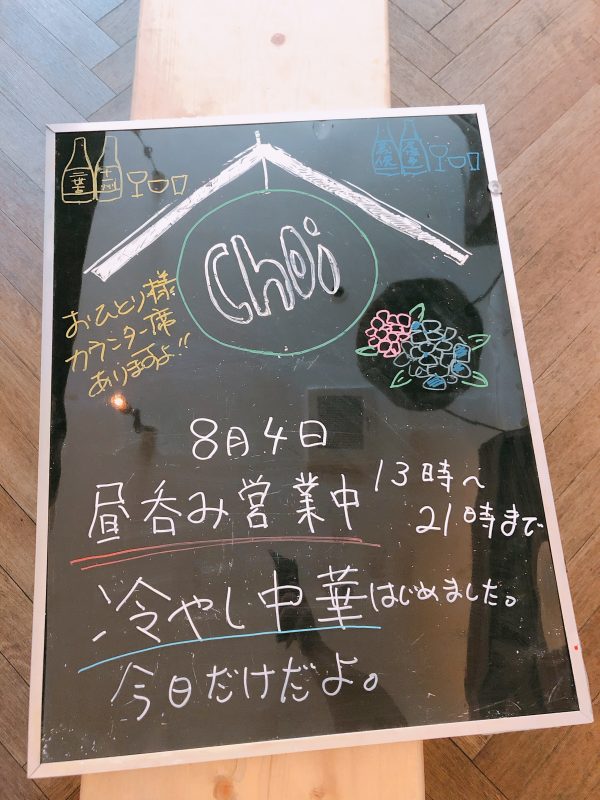 choi
おひとり様
カウンター席
ありますよ!!
8月4日
昼呑み営業中 13時〜
21時まで
冷やし中華はじめました。
今日だけだよ。